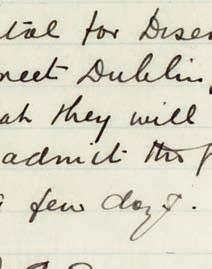 ital for Disea
reet Dublin,
at they will
admit the p
few days.